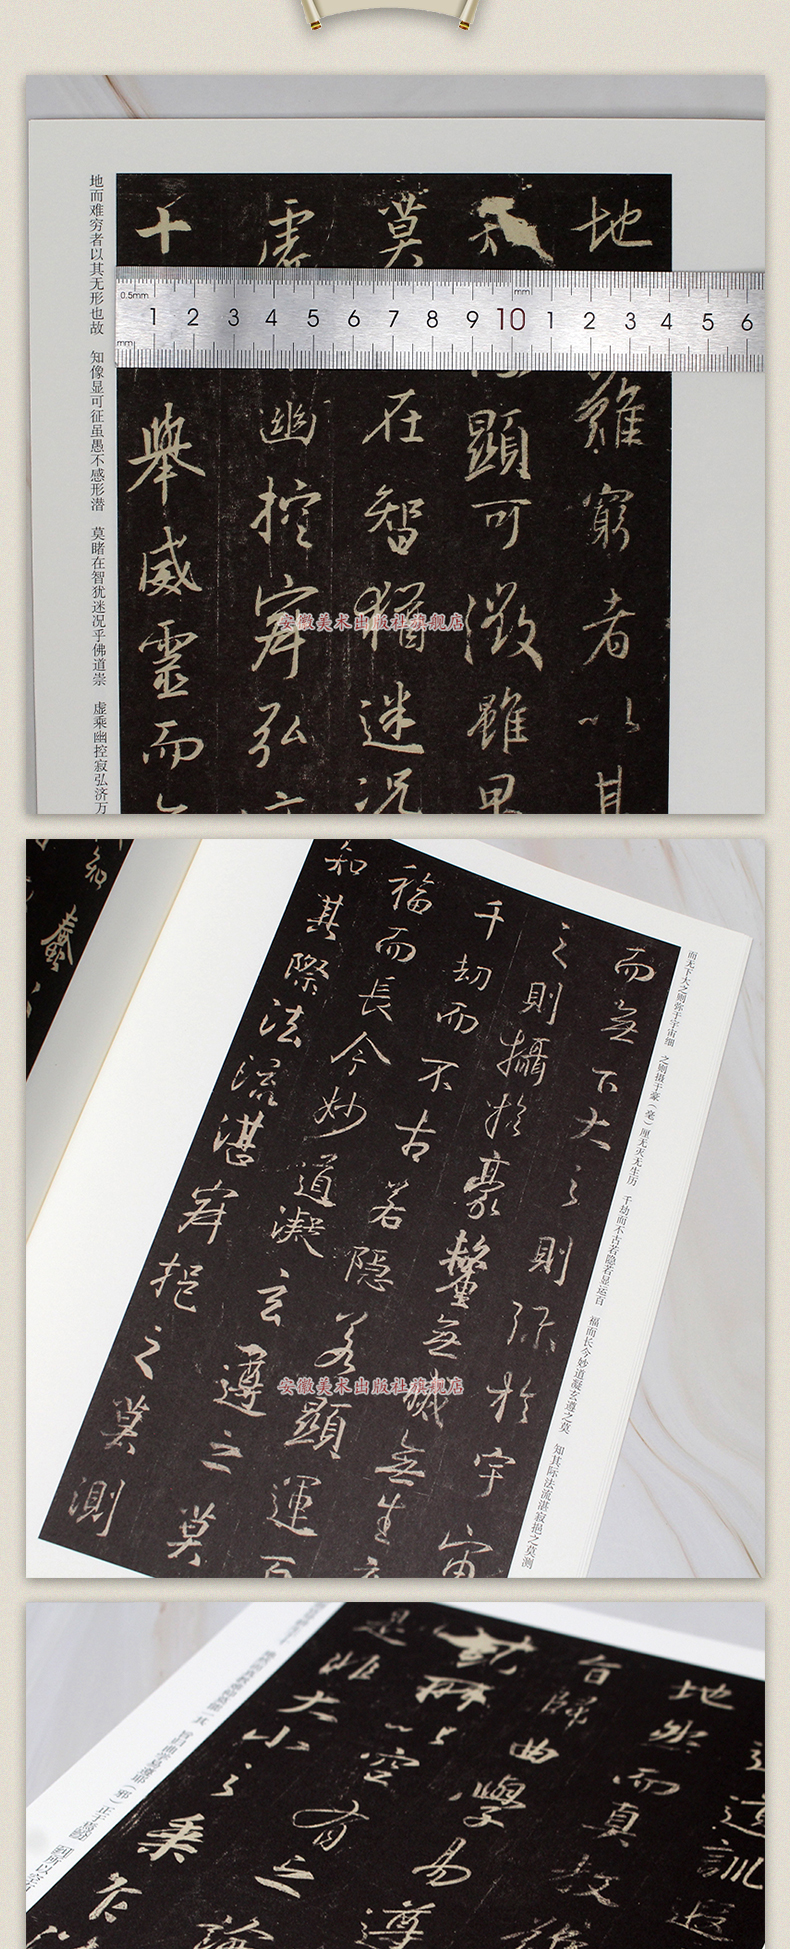 地而难穷者以其无形也故 知像显可征虽愚不感形潜 莫睹在智犹迷况乎佛道崇 虚乘幽控寂弘济万
地
难穷者以其
显可征虽
莫
在智猶迷況
虛
幽控寂弘
十
舉威靈而
0.5mm
mm
1 2 3 4 5 6 7 8 9 10 1 2 3 4 5 6
mm
安徽美术出版社旗舰店
而无下大之则弥于宇宙细 之则摄于豪（毫）厘无灭无生历 千劫而不古若隐若显运百 福而长今妙道凝玄遵之莫 知其际法流湛寂挹之莫测
而無下大之則弥於宇宙
之則攝於豪釐無滅無生
千劫而不古若隱若顯運百
福而長今妙道凝玄遵之莫
知其際法流湛寂挹之莫測
安徽美术出版社旗舰店
道訓遐
地然而真教難
旨歸曲學易遵
所以空有之論
是非大小之乘